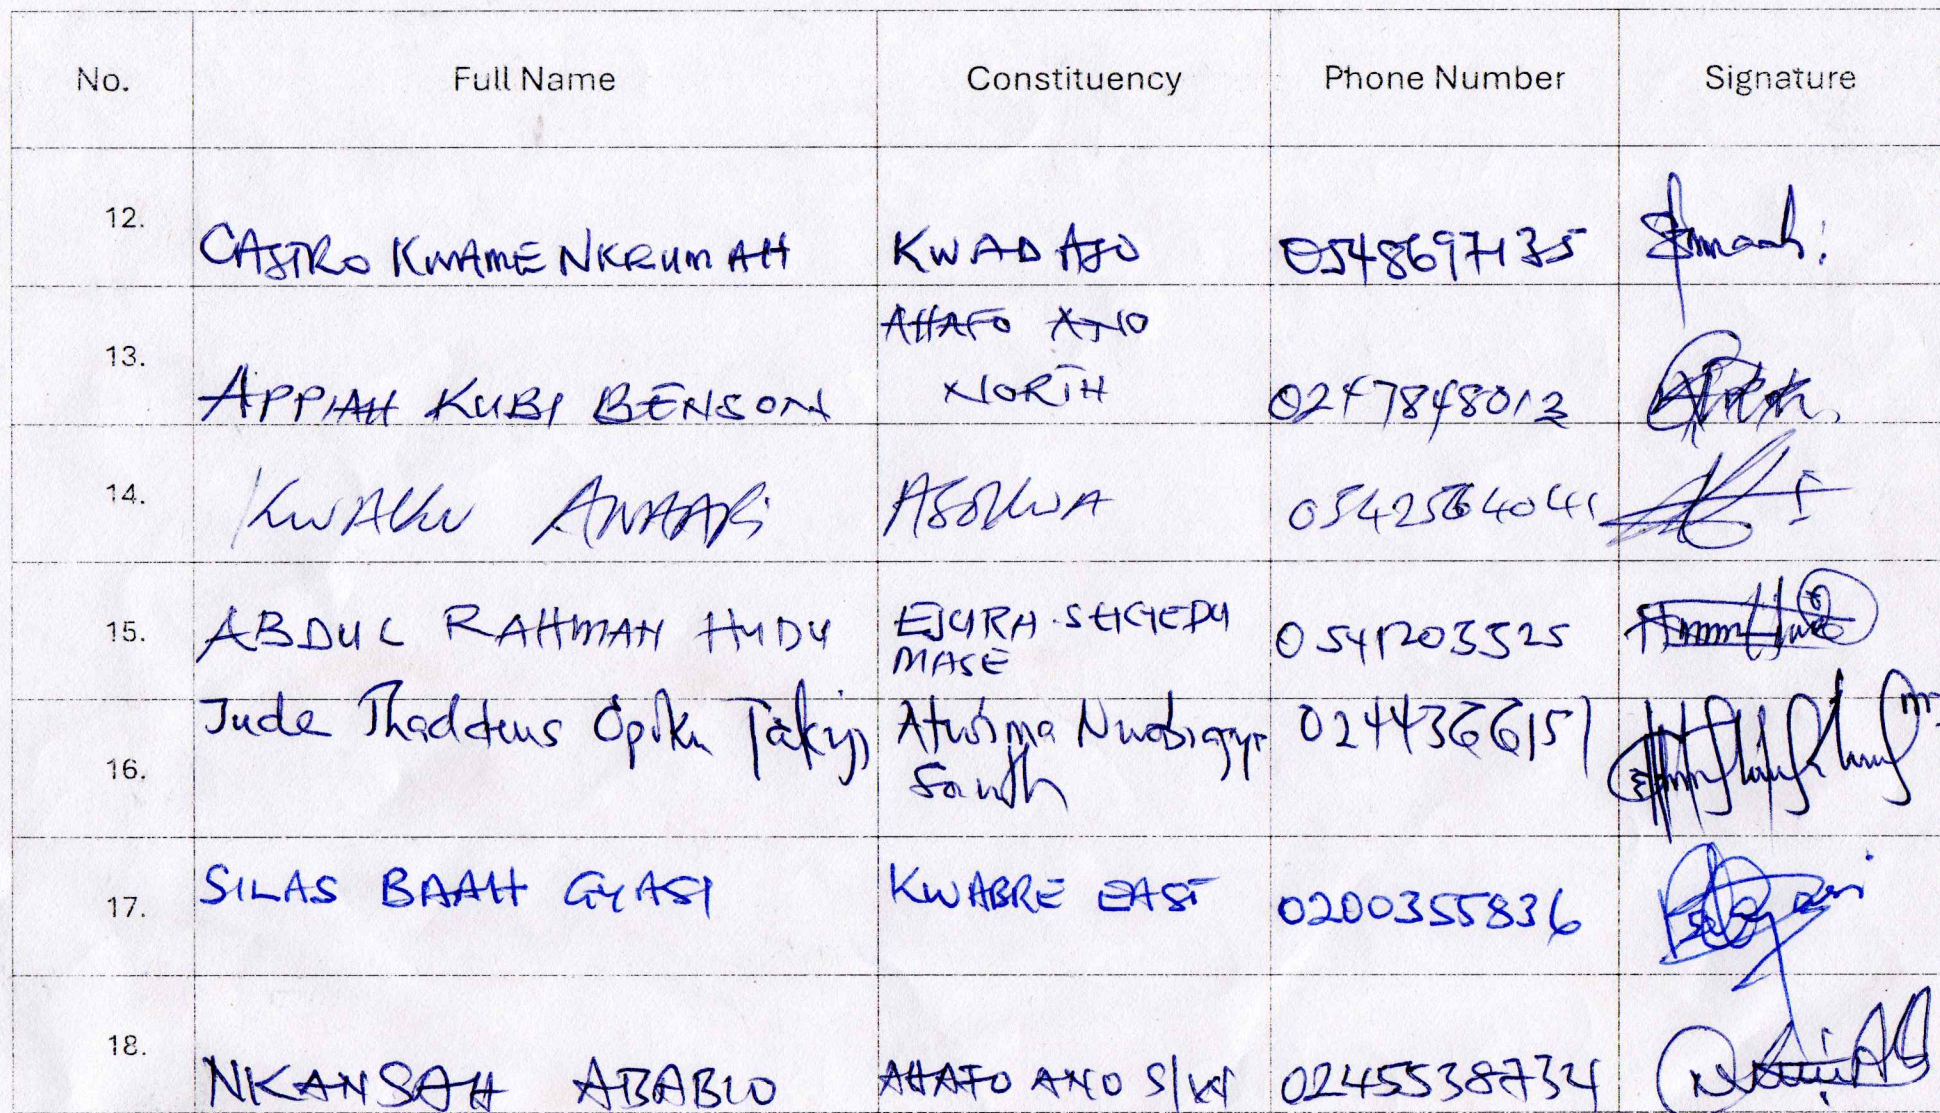 No. Full Name Constituency Phone Number Signature
12. CASTRO KWAME NKRUMAH KWADASO 0548697135
AHAFO ANO
13. APPIAH KUBI BENSON NORTH 0247848013
14. KWAKU ASOKWA 0542564041
15. ABDUL RAHMAN HUDU EJURA-SEKYEDU 0541203525
MASE
16. Jude Thaddeus Opoku Takyi Atwima Nwabiagya 0244366151
South
17. SILAS BAAH GYASI KWABRE EAST 0200355836
18. NKANSAH ABABIO AHAFO ANO S/W 0245538734